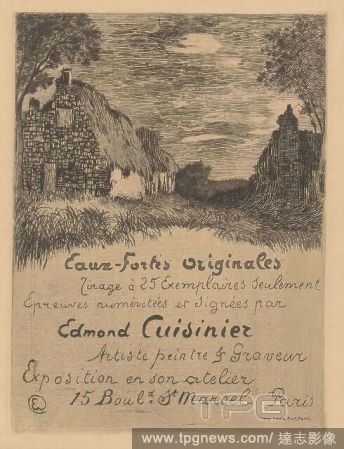 Eaux-Fortes Originales
Tirage à 25 Exemplaires seulement
Epreuves numérotées et signées par
Edmond Cuisinier
Artiste peintre & Graveur
Exposition en son atelier
15 Boul.d St Marcel Paris
TPG
www.tpgnews.com / 達志影像